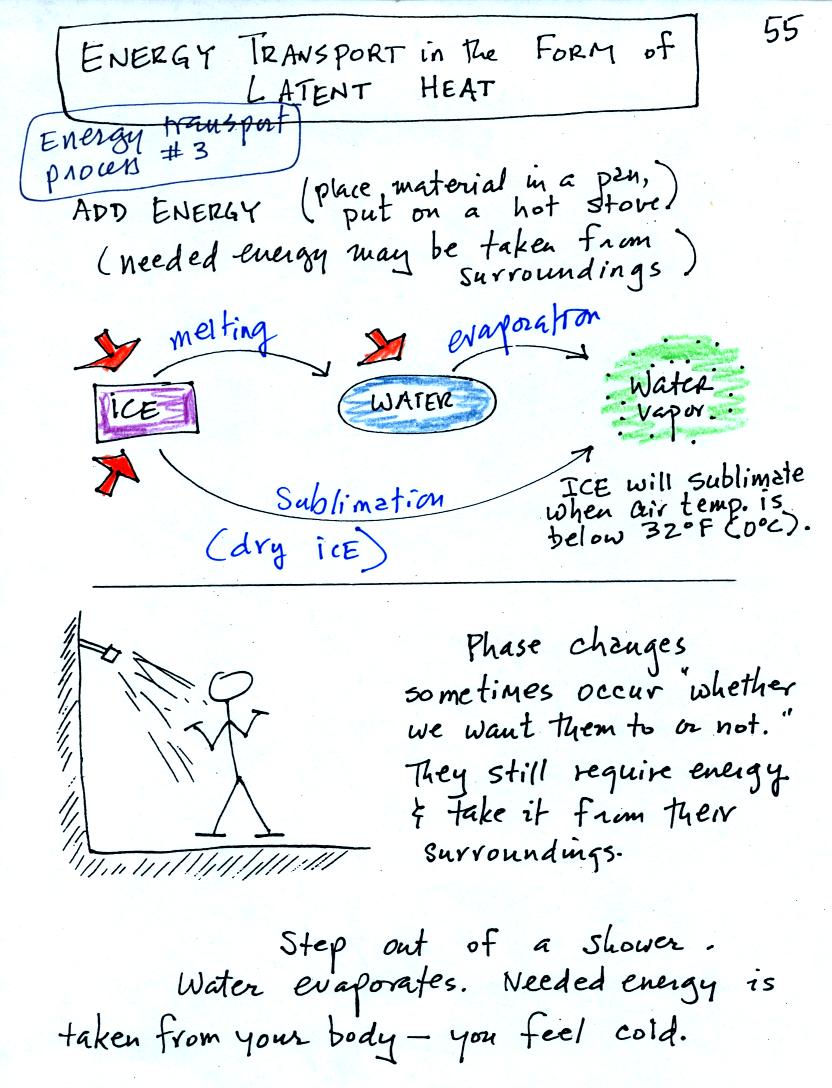 55
ENERGY TRANSPORT in the FORM of
LATENT HEAT
Energy transport
process #3
ADD ENERGY (place material in a pan,
put on a hot stove)
(needed energy may be taken from
surroundings)
melting
evaporation
ICE
WATER
Water
vapor
Sublimation
(dry ice)
ICE will sublimate
when air temp. is
below 32°F (0°C).
Phase changes
sometimes occur "whether
we want them to or not."
They still require energy
& take it from their
surroundings.
Step out of a shower.
Water evaporates. Needed energy is
taken from your body — you feel cold.